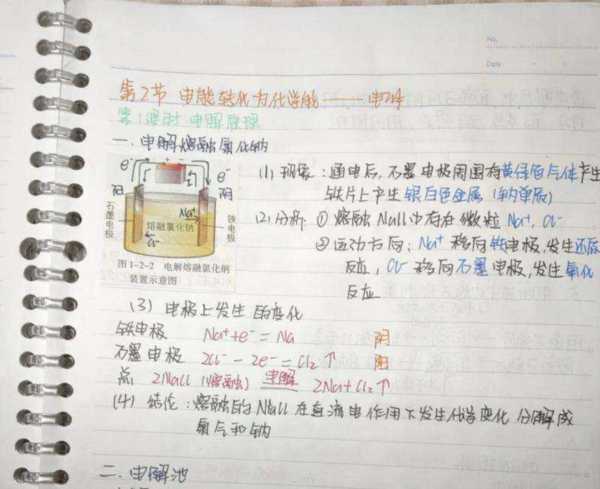 No.
Date
第2节 电能转化为化学能——电解
第1课时 电解原理
一、电解熔融氯化钠
e⁻ e⁻
阳 阴
石墨电极
铁电极
Na⁺
熔融氯化钠
Cl⁻
图1-2-2 电解熔融氯化钠
装置示意图
(1) 现象：通电后，石墨电极周围有黄绿色气体产生
铁片上产生银白色金属（钠单质）
(2) 分析 ① 熔融NaCl中存在微粒 Na⁺, Cl⁻
② 运动方向：Na⁺移向铁电极，发生还原
反应，Cl⁻移向石墨电极，发生氧化
反应
(3) 电极上发生的变化
铁电极 Na⁺+e⁻=Na 阴
石墨电极 2Cl⁻-2e⁻=Cl₂↑ 阳
总 2NaCl（熔融）电解 2Na+Cl₂↑
(4) 结论：熔融的NaCl在直流电作用下发生化学变化 分解成
氯气和钠
二、电解池